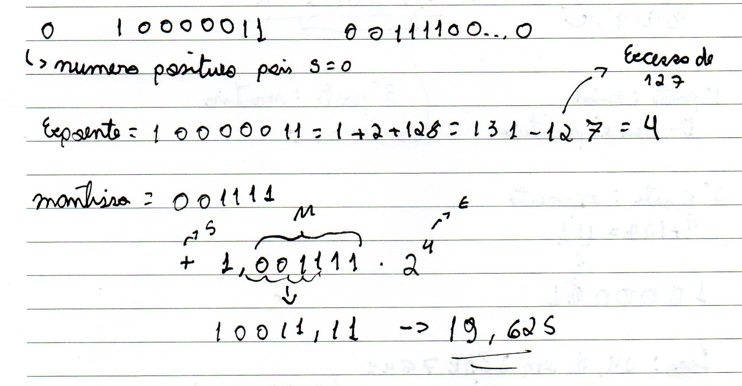 0 10000011 00111100...0
↳ numero positivo pois S=0
Excesso de
127
Expoente = 10000011 = 1+2+128 = 131 - 127 = 4
mantissa = 001111
S M E
+ 1,001111 . 2^4
10011,11 -> 19,625